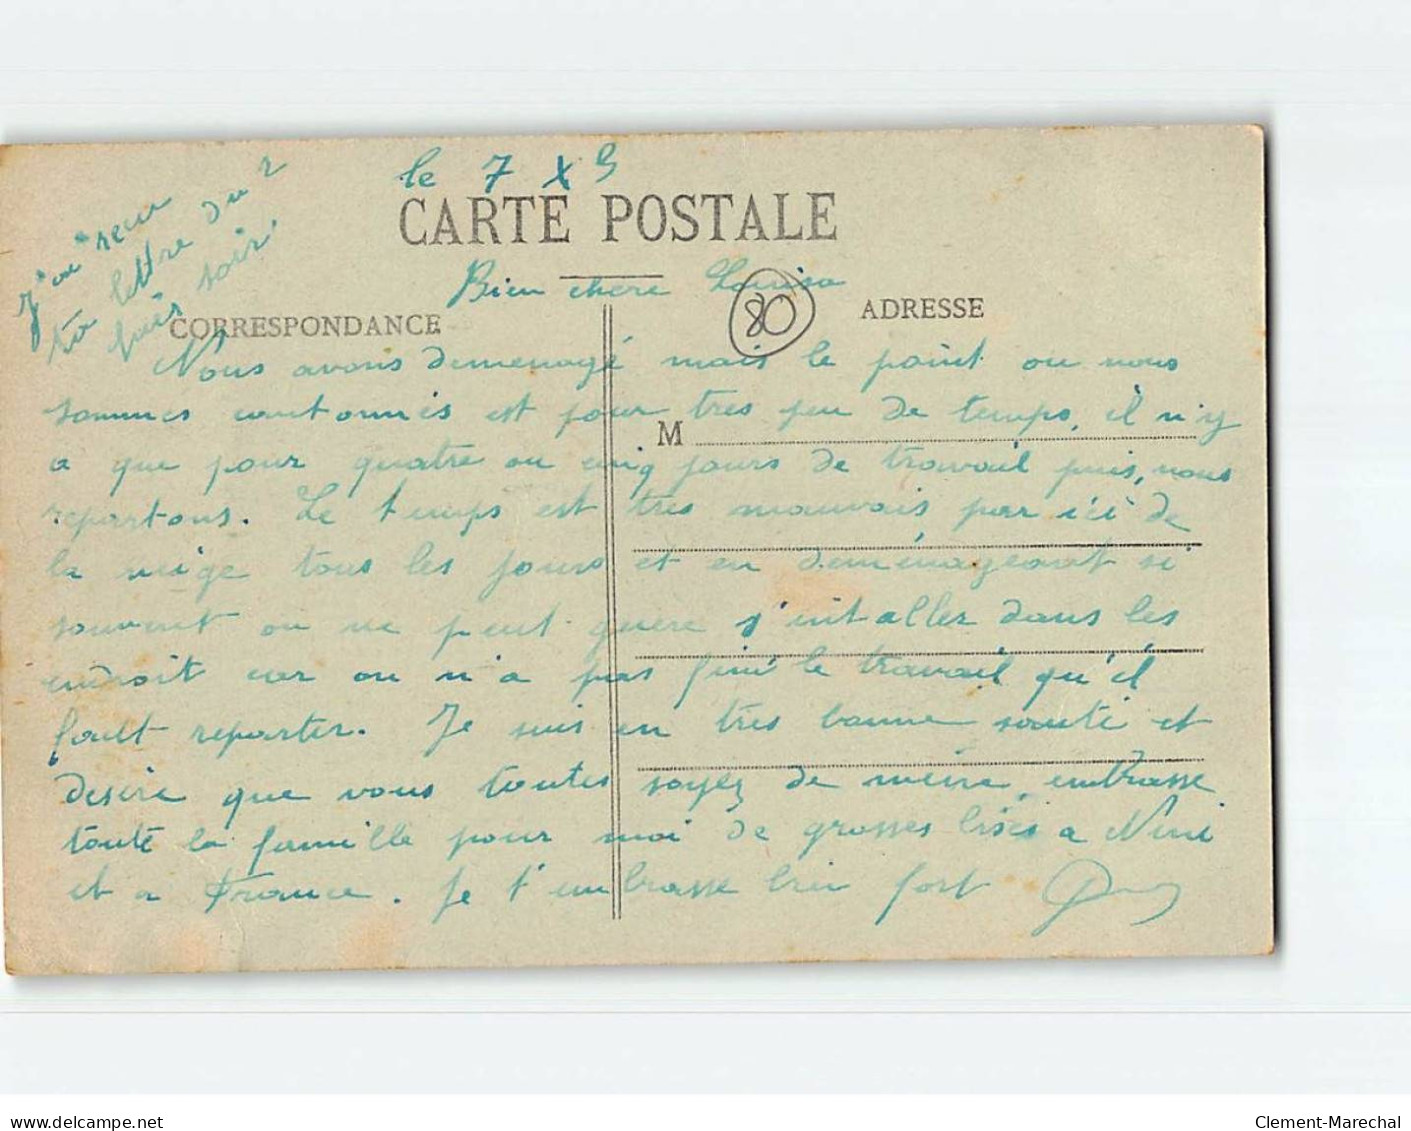 le 7 X
CARTE POSTALE
J'ai recu
ta lettre du 2
hier soir.
Bien chere Louisa
80
CORRESPONDANCE
ADRESSE
M
Nous avons demenagé mais le point ou nous
sommes cantonnés est pour tres peu de temps, il n'y
a que pour quatre ou cinq jours de travail puis, nous
repartons. Le temps est tres mauvais par ici de
la neige tous les jours et en deménageant si
souvent on ne peut guere s'installer dans les
endroit car on n'a pas fini le travail qu'il
fault reparter. Je suis en très bonne santé et
desire que vous toutes soyez de meme, embrasse
toute la famille pour moi de grosses bises a Nini
et a France. Je t'embrasse bien fort
Clement-Marechal